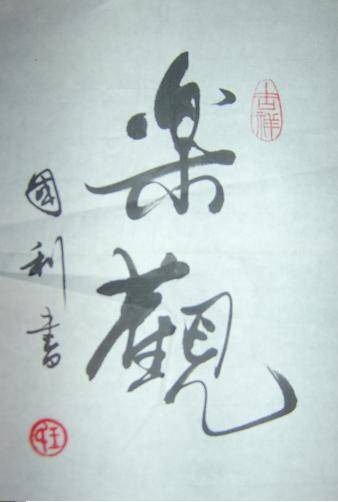 吉祥
樂觀
國利書